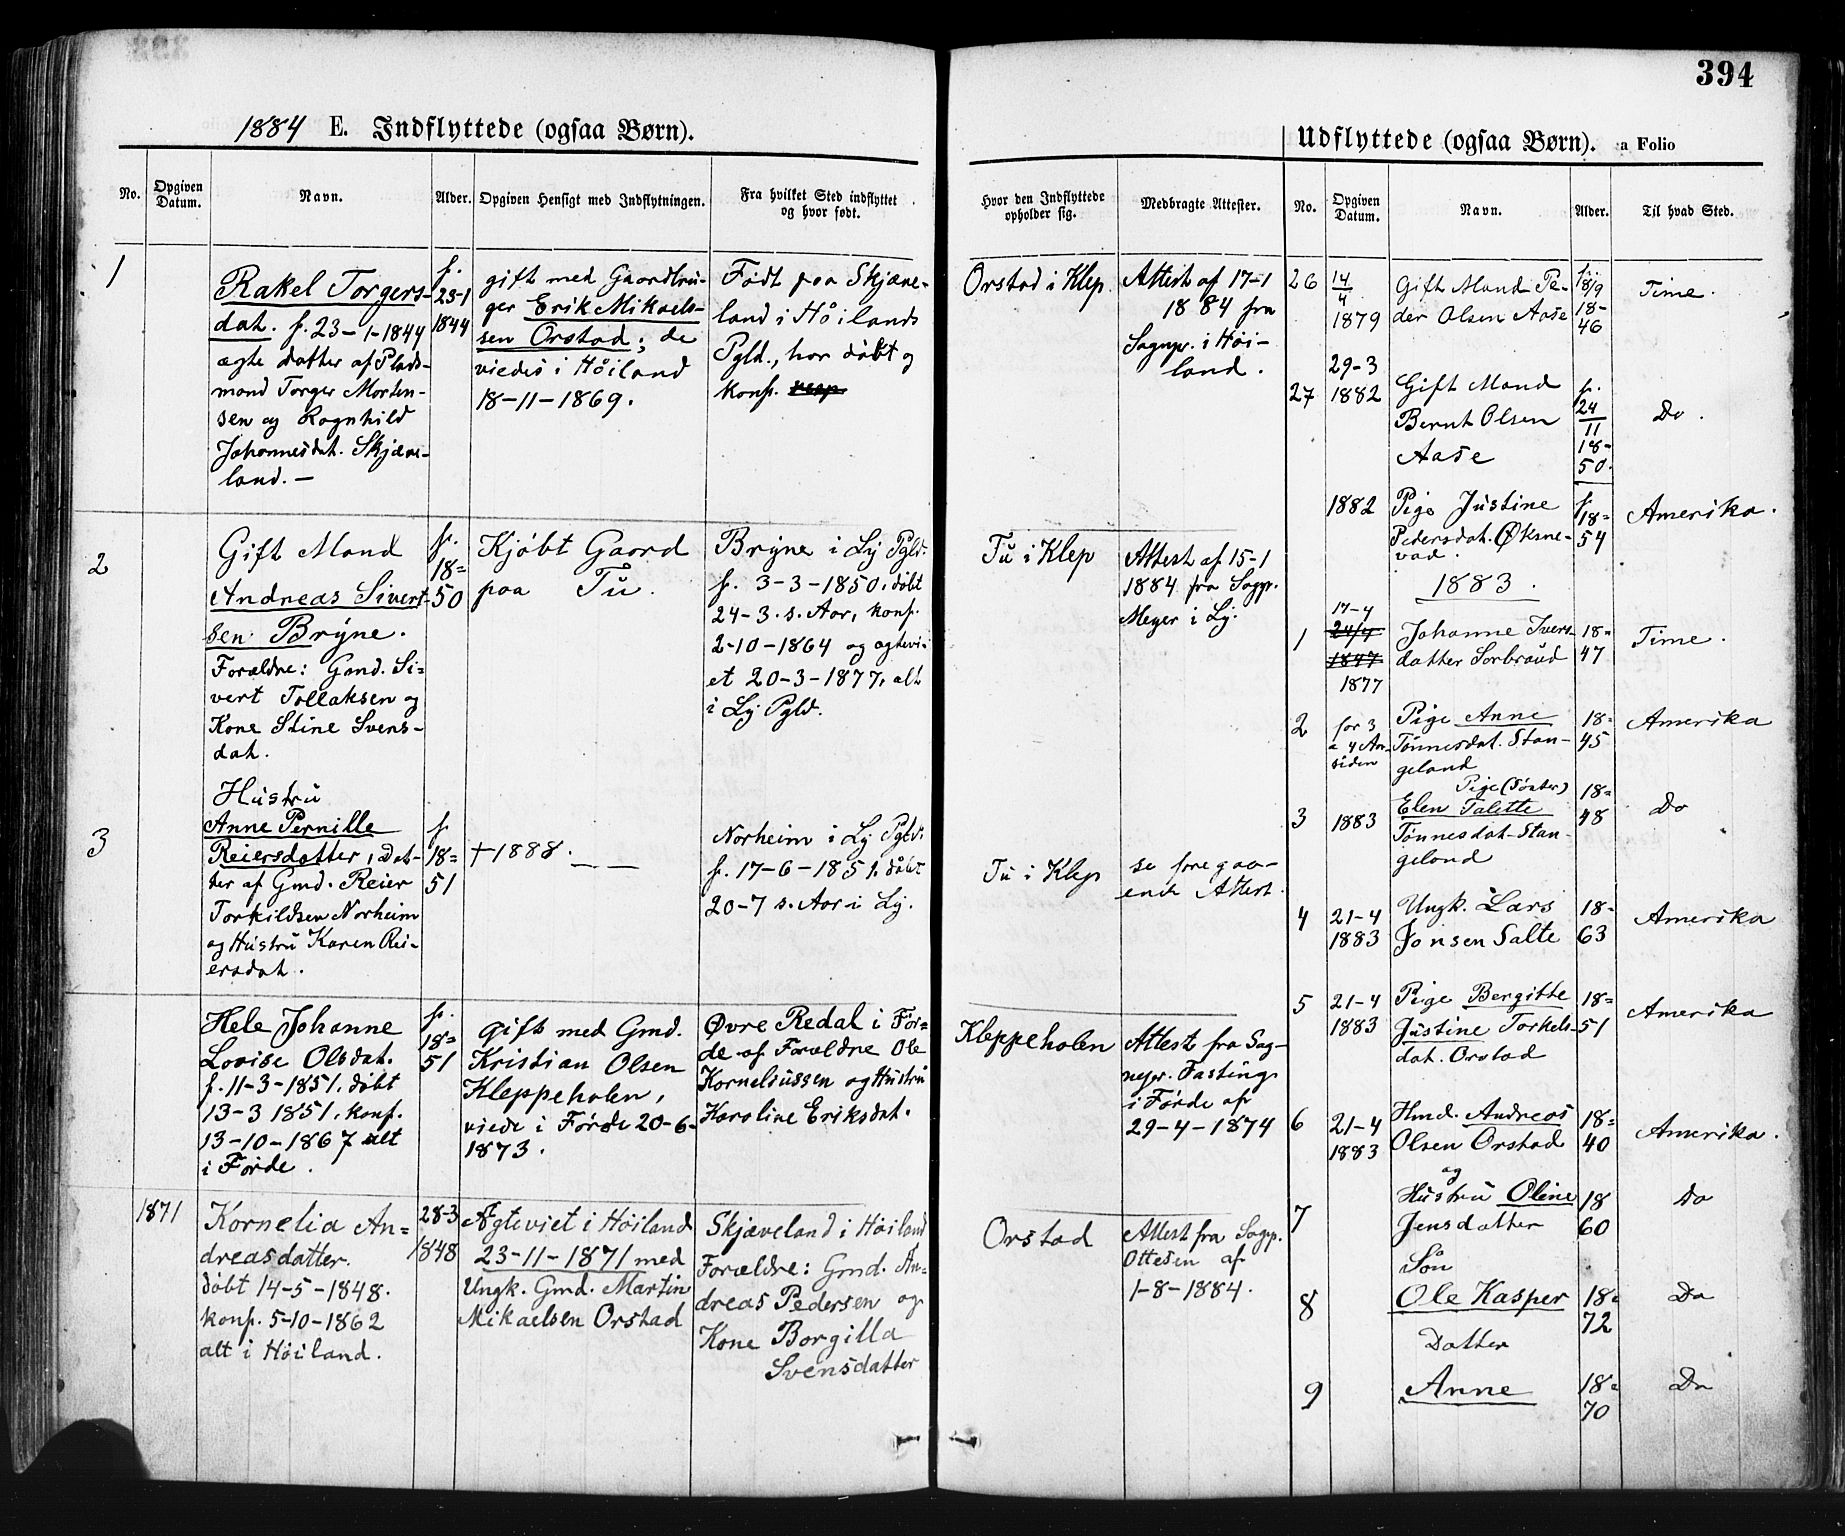 394
1884 E. Indflyttede (ogsaa Børn).
No.
Opgiven
Datum.
Navn.
Alder.
Opgiven Hensigt med Indflytningen.
Fra hvilket Sted indflyttet
og hvor født.
Hvor den Indflyttede
opholder sig.
Medbragte Attester.
1
Rakel Torgers-
dat. f. 23-1-1844
ægte datter af Plads-
mand Torger Morten-
sen og Ragnhild
Johannesdat. Skjæve-
land. —
f.
23-1
1844
gift med Gaardbru-
ger Erik Mikaels-
sen Orstad; de
viedes i Höiland
18-11-1869.
Født paa Skjæve-
land i Höilands
Pgld., har döbt og
konf.
Orstad i Klep.
Attest af 17-1
1884 fra
Sognpr. i Höi-
land.
2
Gift Mand
Andreas Sivert-
sen Bryne.
Forældre: Gmd. Si-
vert Tollaksen og
Kone Stine Svens-
dat.
f.
18=
50
Kjøbt Gaard
paa Tu.
Bryne i Ly Pgld.
f. 3-3-1850, döbt
24-3. s. Aar, konf.
2-10-1864 og ægtevi-
et 20-3-1877, alt
i Ly Pgld.
Tu i Klep
Attest af 15-1
1884 fra Sogpr.
Meyer i Ly.
3
Hustru
Anne Pernille
Reiersdatter, Dat-
ter af Gmd. Reier
Torkildsen Norheim
og Hustru Karen Rei-
ersdat.
f
18=
51
+1888.
Norheim i Ly Pgld.
f. 17-6-1851, döbt
20-7 s. Aar i Ly.
Tu i Klep
se forega-
ende Attest
Hele Johanne
Lovise Olsdat.
f. 11-3-1851, döbt
13-3 1851, konf.
13-10-1867 alt
i Förde.
f.
18=
51
gift med Gmd.
Kristian Olsen
Kleppeholen,
viede i Förde 20-6-
1873.
Øvre Redal i För-
de af Forældre Ole
Korneliussen og Hustru
Karoline Eriksdat.
Kleppeholen
Attest fra Sog-
nepr. Fasting
i Förde af
29-4-1874
1871
Kornelia An=
dreasdatter.
döbt 14-5-1848.
konf. 5-10-1862
alt i Höiland.
28-3
1848
Ægteviet i Höiland
23-11-1871 med
Ungk. Gmd. Martin
Mikaelsen Orstad
Skjæveland i Höiland
Forældre: Gmd. An-
dreas Pedersen og
Kone Borgilla
Svensdatter
Orstad
Attest fra Sogpr.
Ottesen af
1-8-1884.
Udflyttede (ogsaa Børn). a Folio
No.
Opgiven
Datum.
Navn.
Alder.
Til hvad Sted.
26
14/4
1879
Gift Mand Pe-
der Olsen Aase
f.
18/9
18-
46
Time.
27
29-3
1882
Gift Mand
Bernt Olsen
Aase
f.
24/11
18=
50.
Do.
1882
Pige Justine
Pedersdat. Øksne-
vad.
f.
18=
54
Amerika.
1883.
1
17-4
24/4
1847
1877
Johanne Ivers-
datter Sorbraud
18=
47
Time.
2
for 3
a 4 Aar
siden
Pige Anne
Tönnesdat. Stan-
geland
18=
45
Amerika
3
1883
Pige (Söster)
Elen Talette
Tönnesdat. Stan-
geland
18=
48
Do
4
21-4
1883
Ungk. Lars
Jonsen Salte
18=
63
Amerika
5
21-4
1883
Pige Bergitte
Justine Torkels-
dat. Orstad
18=
51
Amerika
6
21-4
1883
Hmd. Andreas
Olsen Orstad
18=
40
Amerika.
7
og
Hustru Oline
Jensdatter
18
60
Do
8
Sön
Ole Kasper
18=
72
Do
9
Datter
Anne
18=
70
Do